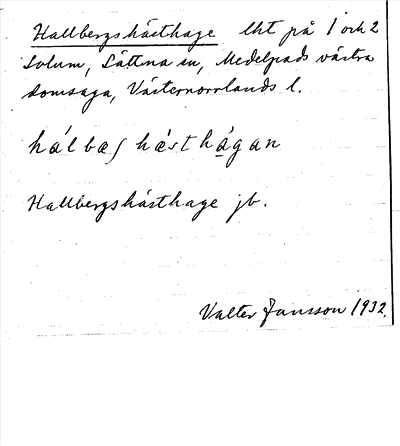 Hallbergshästhage lht på 1 och 2
Solum, Sättna sn, Medelpads västra
domsaga, Västernorrlands l.
hálbæʃ hæ̀st hágan
Hallbergshästhage jb.
Valter Jansson 1932.